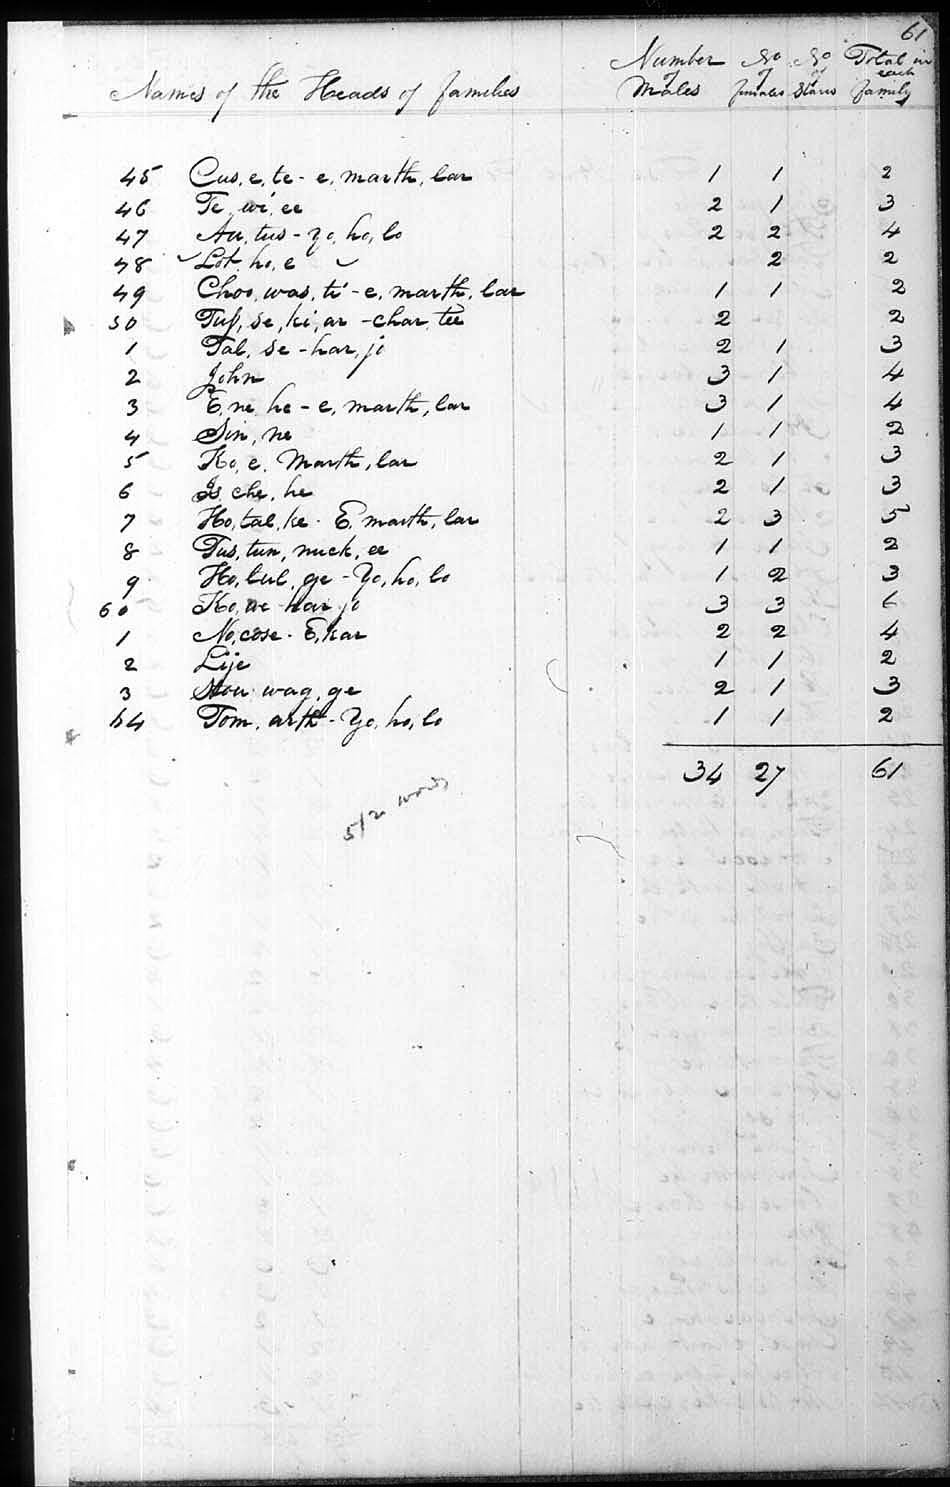 61
Names of the Heads of families Number of Males No of females No of Slaves Total in each family
45 Cus, e, te - e, marth, lar 1 1 2
46 Te, wi, ee 2 1 3
47 Au, tus - Yo, ho, lo 2 2 4
48 Lot, ho, e 2 2
49 Choo, was, ti - e, marth, lar 1 1 2
50 Tus, se, ki, ar - char, tee 2 2
1 Tal, se - har, jo 2 1 3
2 John 3 1 4
3 E, ne, he - e, marth, lar 3 1 4
4 Sin, ne 1 1 2
5 Ko, e, Marth, lar 2 1 3
6 Is, che, he 2 1 3
7 Ho, tal, ke - E, marth, lar 2 3 5
8 Tus, tun, nuck, ee 1 1 2
9 Ho, tul, ge - Yo, ho, lo 1 2 3
60 Ko, we - har, jo 3 3 6
1 No, cose - E, kar 2 2 4
2 Lije 1 1 2
3 wag, ge 2 1 3
64 Tom, arth - Yo, ho, lo 1 1 2
34 27 61
512 words